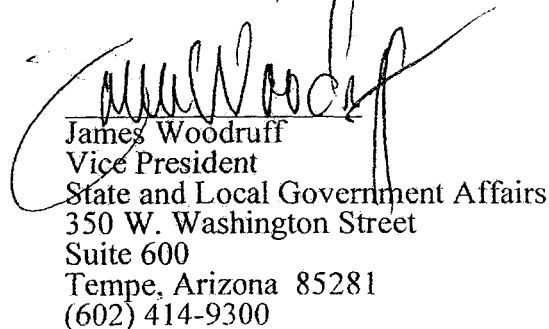 James Woodruff
James Woodruff
Vice President
State and Local Government Affairs
350 W. Washington Street
Suite 600
Tempe, Arizona  85281
(602) 414-9300